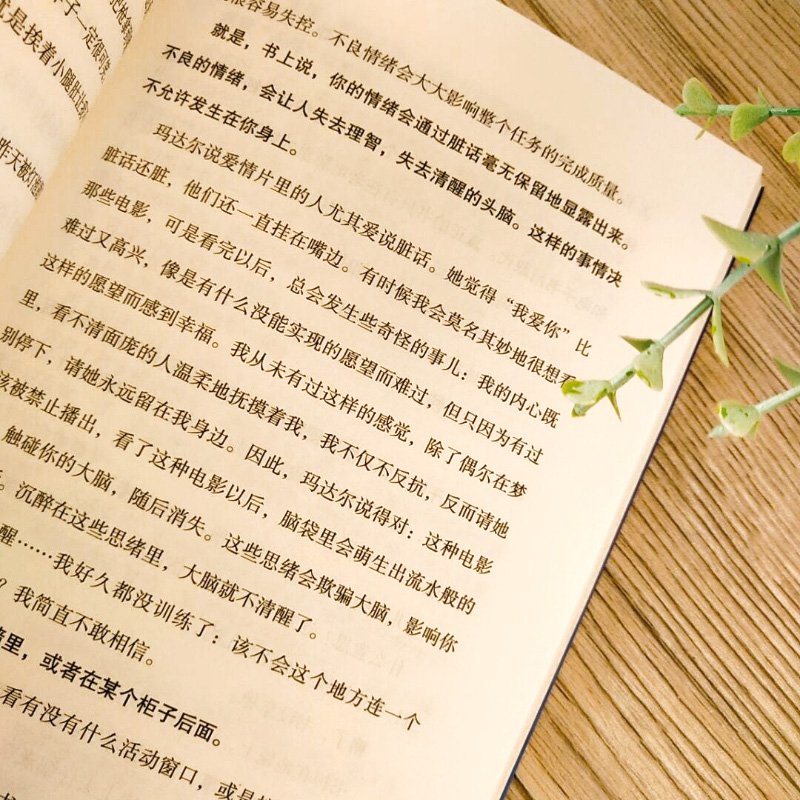 子一定很
就是挨着小腿肚
昨天被
很容易失控。不良情绪会大大影响整个任务的完成质量。
就是，书上说，你的情绪会通过脏话毫无保留地显露出来。
不良的情绪，会让人失去理智，失去清醒的头脑。这样的事情决
不允许发生在你身上。
玛达尔说爱情片里的人尤其爱说脏话。她觉得“我爱你”比
脏话还脏，他们还一直挂在嘴边。有时候我会莫名其妙地很想看
那些电影，可是看完以后，总会发生些奇怪的事儿：我的内心既
难过又高兴，像是有什么没能实现的愿望而难过，但只因为有过
这样的愿望而感到幸福。我从未有过这样的感觉，除了偶尔在梦
里，看不清面庞的人温柔地抚摸着我，我不仅不反抗，反而请她
别停下，请她永远留在我身边。因此，玛达尔说得对：这种电影
该被禁止播出，看了这种电影以后，脑袋里会萌生出流水般的
触碰你的大脑，随后消失。这些思绪会欺骗大脑，影响你
。沉醉在这些思绪里，大脑就不清醒了。
醒……我好久都没训练了：该不会这个地方连一个
？我简直不敢相信。
里，或者在某个柜子后面。
看有没有什么活动窗口，或是